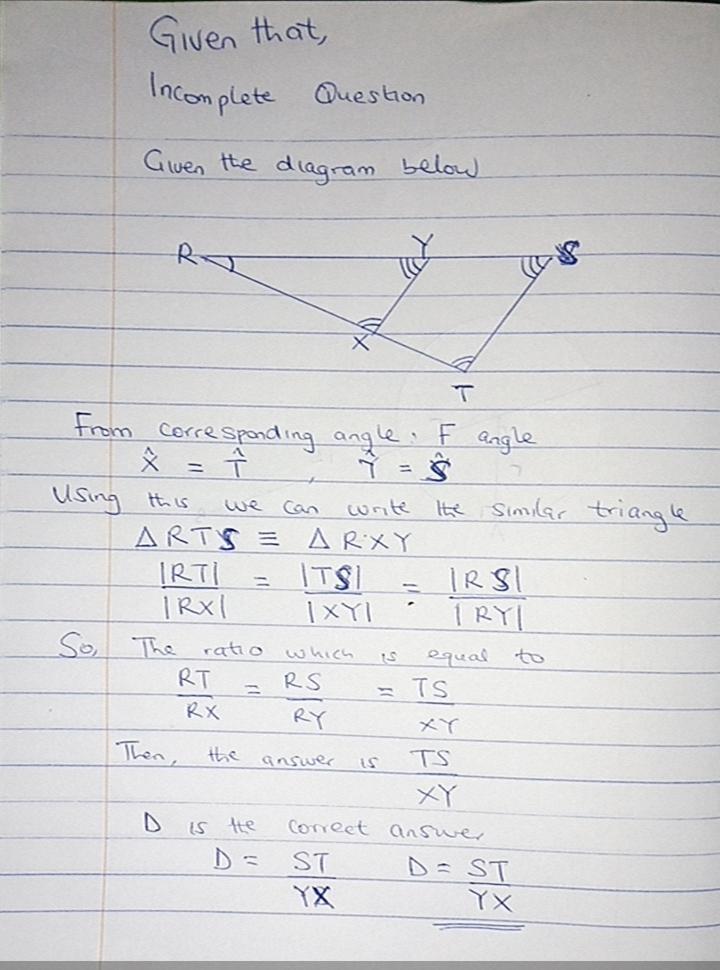 Given that,
Incomplete Question
Given the diagram below
R Y S
X
T
From corresponding angle, F angle
X̂ = T̂ , Ŷ = Ŝ
Using this we can write the similar triangle
△RTS ≡ △RXY
|RT| / |RX| = |TS| / |XY| = |RS| / |RY|
So, The ratio which is equal to
RT / RX = RS / RY = TS / XY
Then, the answer is TS / XY
D is the correct answer
D = ST / YX D = ST / YX